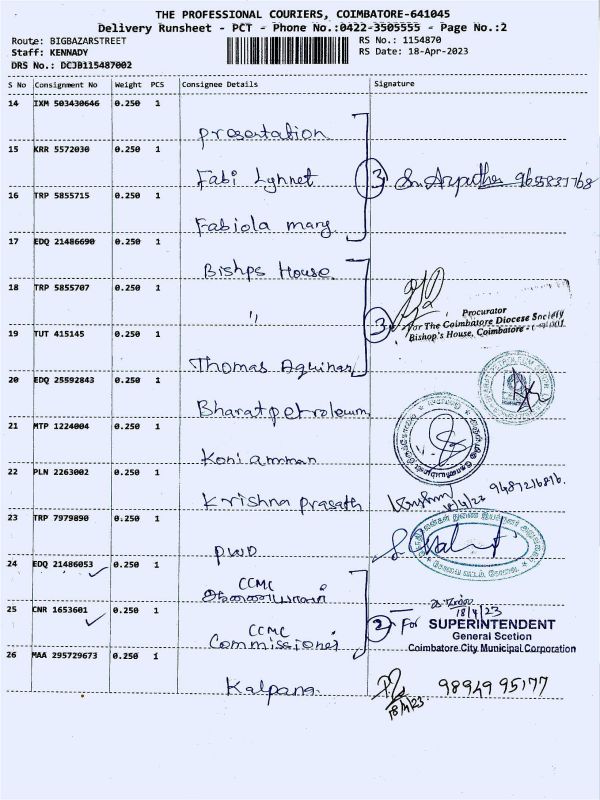 THE PROFESSIONAL COURIERS, COIMBATORE-641045
Delivery Runsheet - PCT - Phone No.:0422-3505555 - Page No.:2
Route: BIGBAZARSTREET
RS No.: 1154870
Staff: KENNADY
RS Date: 18-Apr-2023
DRS No.: DCJB115487002
S No Consignment No Weight PCS Consignee Details Signature
14 IXM 503430646 0.250 1
presentation
15 KRR 5572030 0.250 1
Fabi Lynnet 3
16 TRP 5855715 0.250 1
Fabiola mary
17 EDQ 21486690 0.250 1
Bishps House
18 TRP 5855707 0.250 1
" 3
Procurator
For The Coimbatore Diocese Society
Bishop's House, Coimbatore
19 TUT 415145 0.250 1
Thomas Aquinas
20 EDQ 25592843 0.250 1
Bharatpetroleum
21 MTP 1224004 0.250 1
Koni amman
22 PLN 2263002 0.250 1
Krishna prasath 18/4/23 9487216816.
23 TRP 7979890 0.250 1
PWD
24 EDQ 21486053 0.250 1
CCMC
ஆணையாளர்
25 CNR 1653601 0.250 1
CCMC
Commissioner 2
18/4/23
For SUPERINTENDENT
General Scetion
Coimbatore City Municipal Corporation
26 MAA 295729673 0.250 1
Kalpana 18/4/23 98949 95177